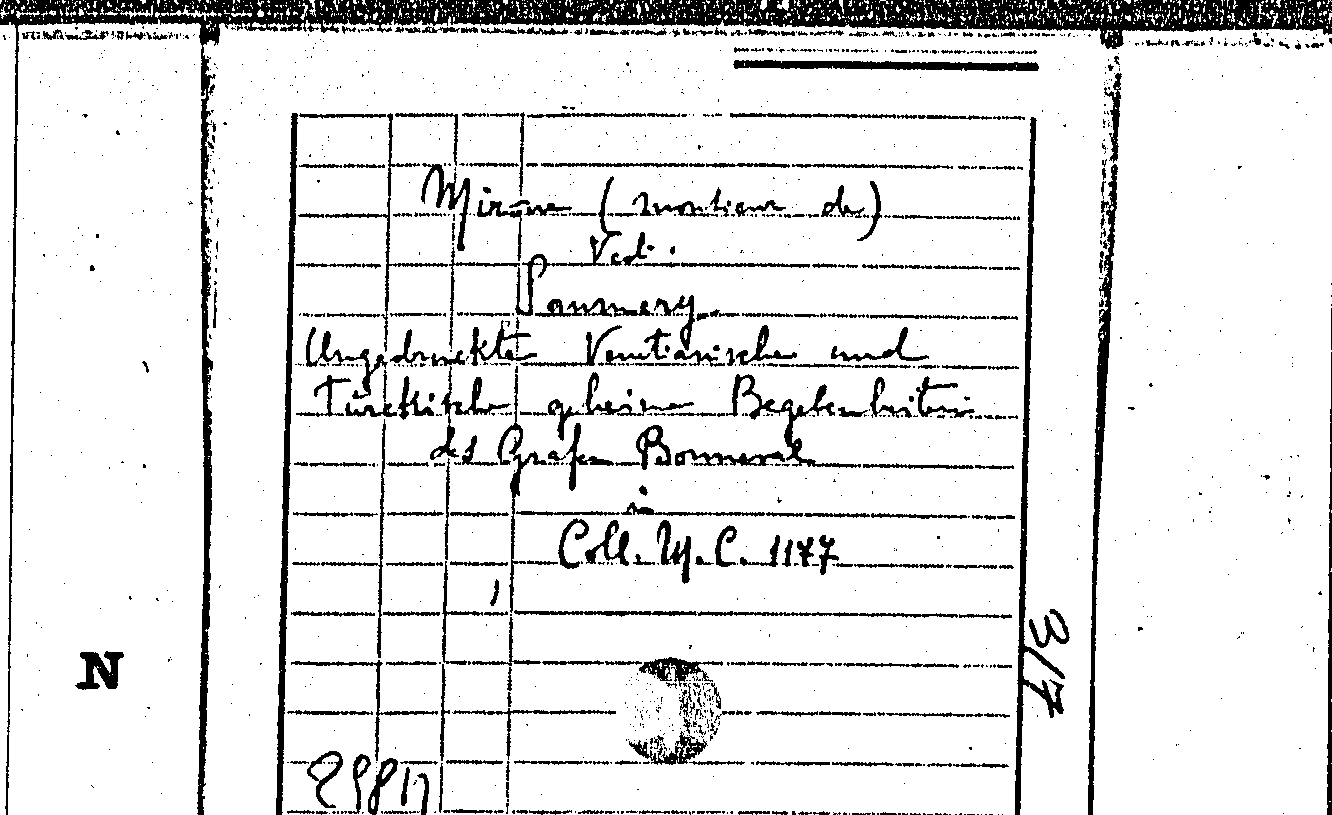 Mirone (monsieur de)
Vedi:
Pommery
Ungedruckte Venetianische und
Türckische geheime Begebenheiten
des Grafen Bonneval
in
Coll. M.C. 1177
3/7
N